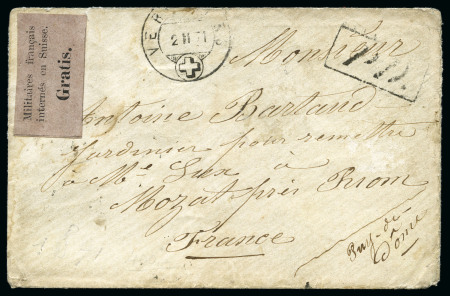 Militaires français
internés en Suisse.
Gratis.
2 II 71
P.D.
Monsieur
Antoine Bartaud
Jardinier pour remettre
à Me Lux à
Mozat près Riom
France
Puy-de-
Dôme